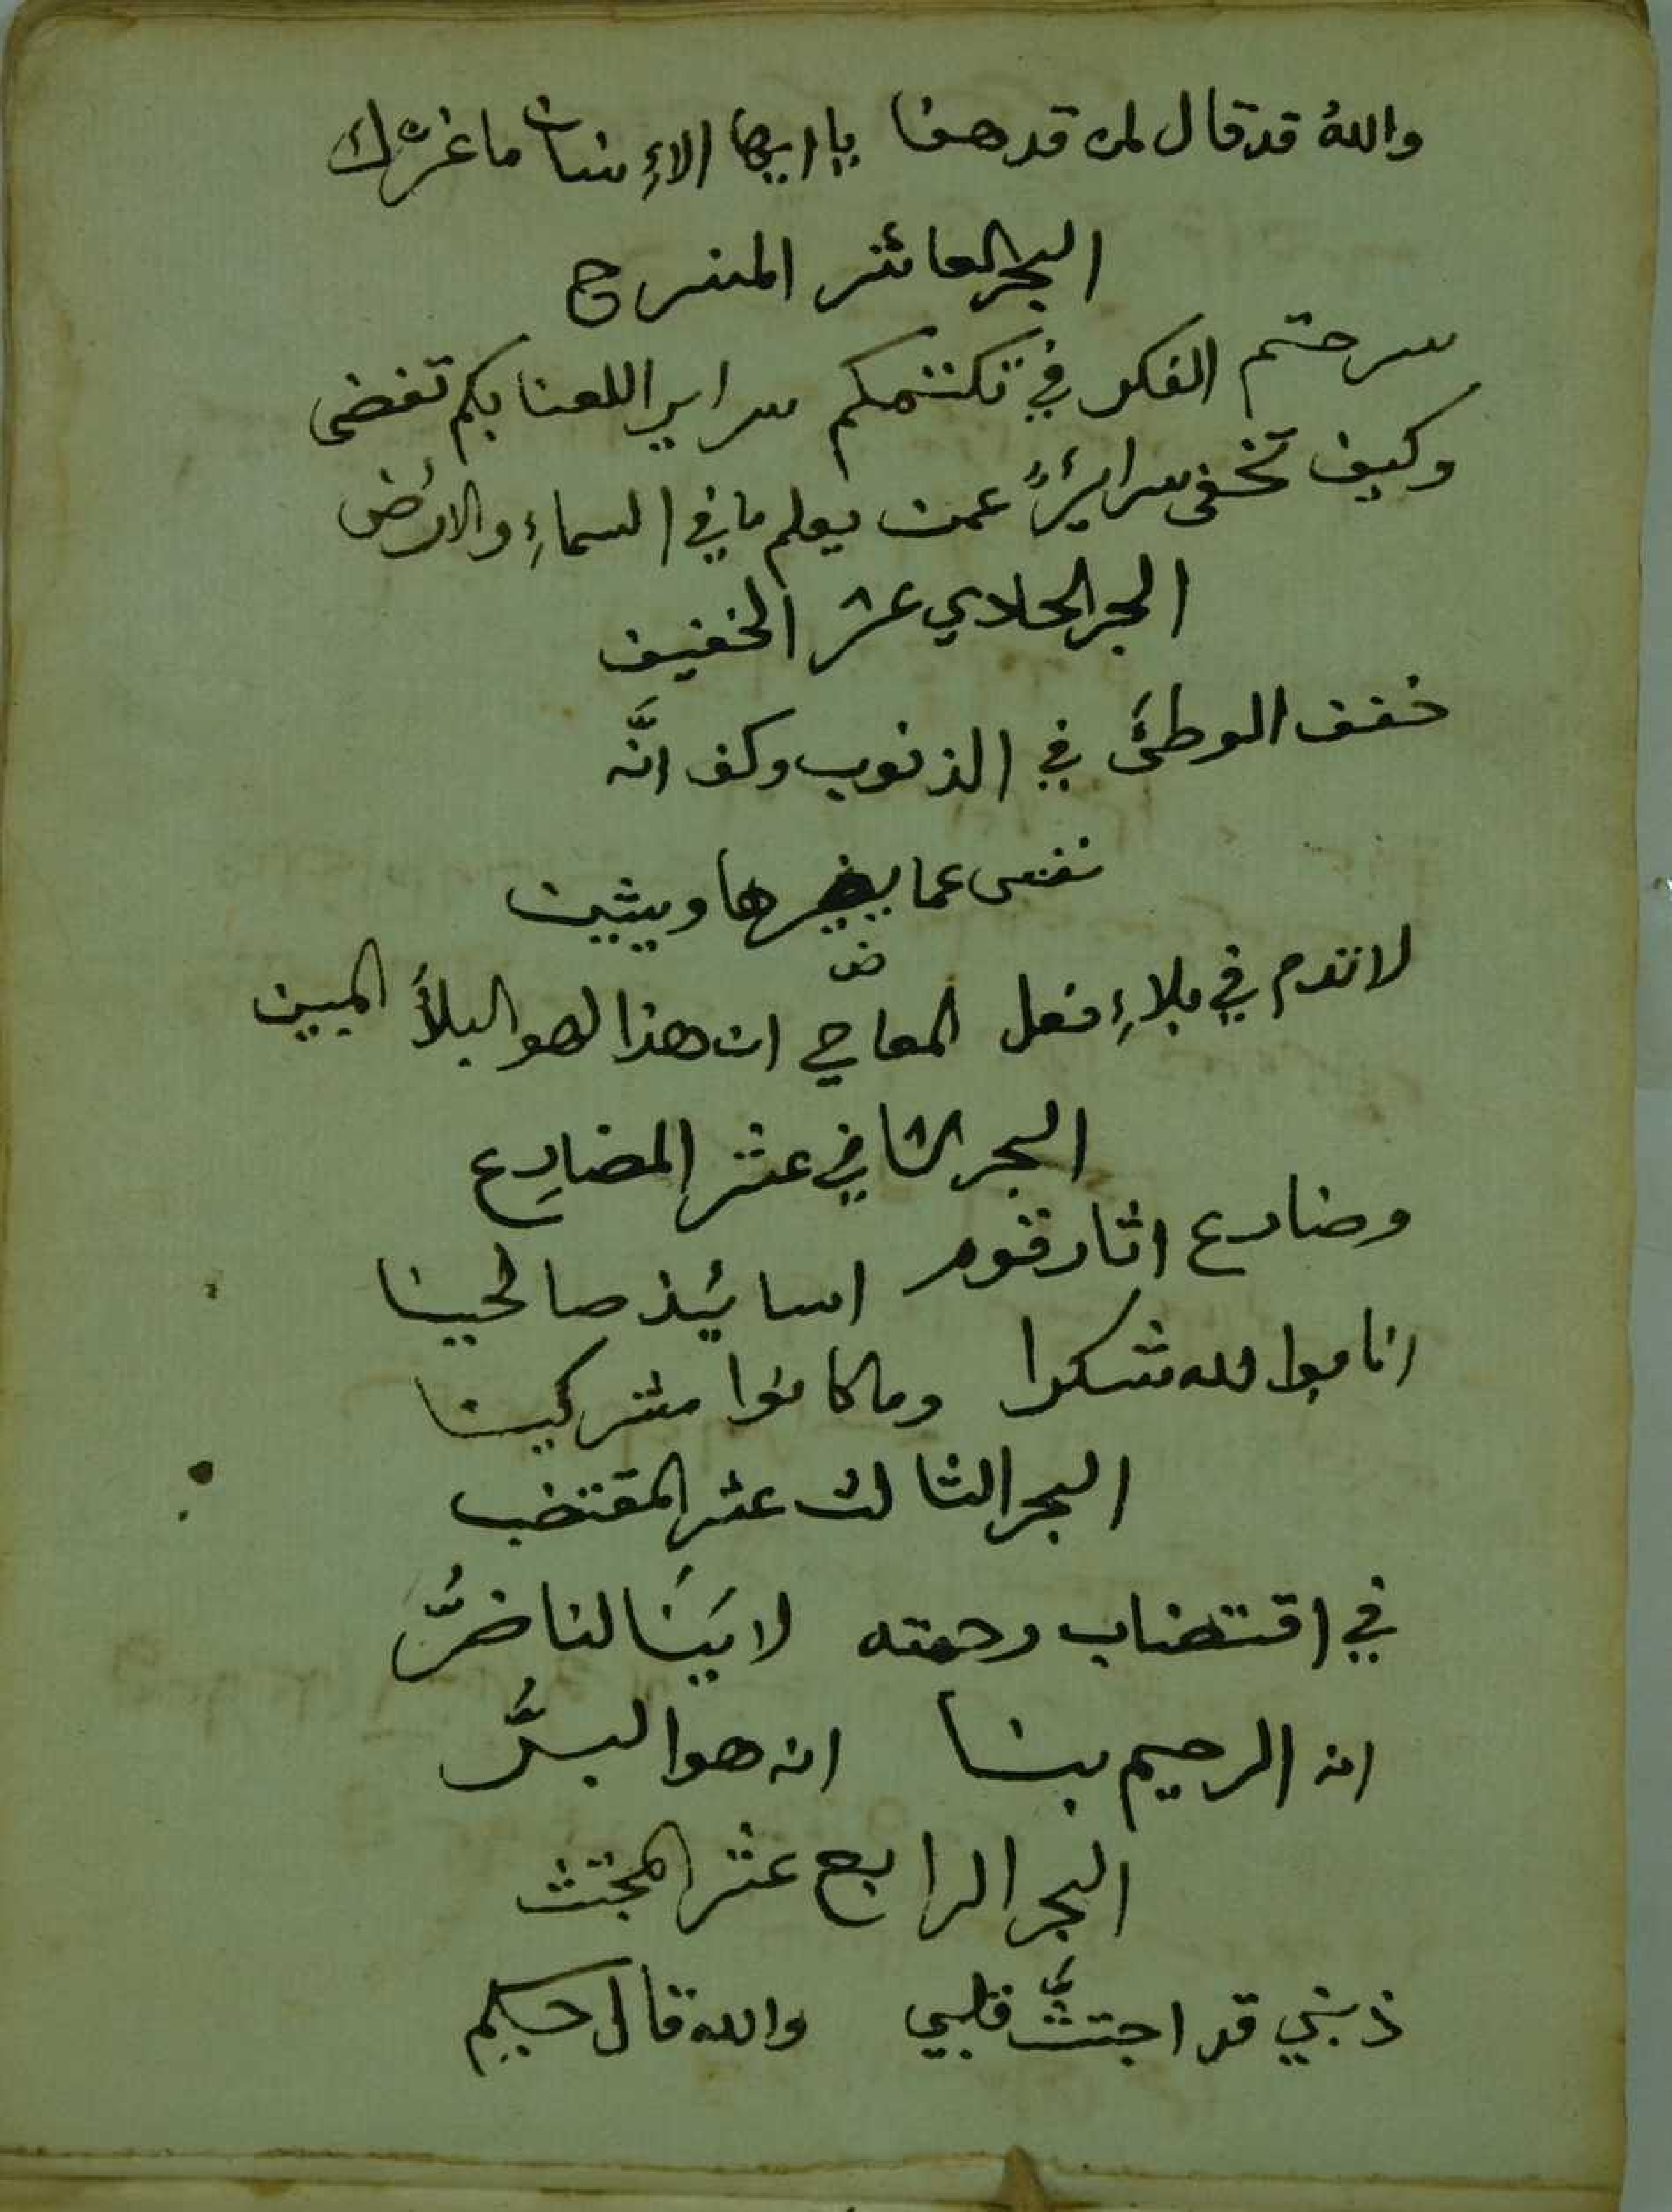 واللهُ قد قال لمن قد هفا يا ايها الإنسان ما غرّك
البحر العاشر المنسرح
سرحتم الفكر في تكتمكم سراير اللعنا بكم تفضى
وكيف تخفى سرايرٌ عمن يعلم ما في السماءِ والارض
البحر الحادي عشر الخفيف
خفف الوطئَ في الذنوب وكف انَّ
نفسى عما يضيرها ويشين
لا تدم في بلاءِ فعل المعاصي ان هذا لهو البلأ المبين
البحر الثاني عشر المضارِع
وضارع اثار قوم اسائيذ صالحينا
اناموا لله شكرا وما كانوا مشركينا
البحر الثالث عشر المقتضب
في اقتضاب رحمته لا يَنَالنا ضرُّ
انه الرحيم بنا انه هو البرُّ
البحر الرابع عشر المجتث
ذنبي قد اجتثَّ قلبي والله قال حكيم